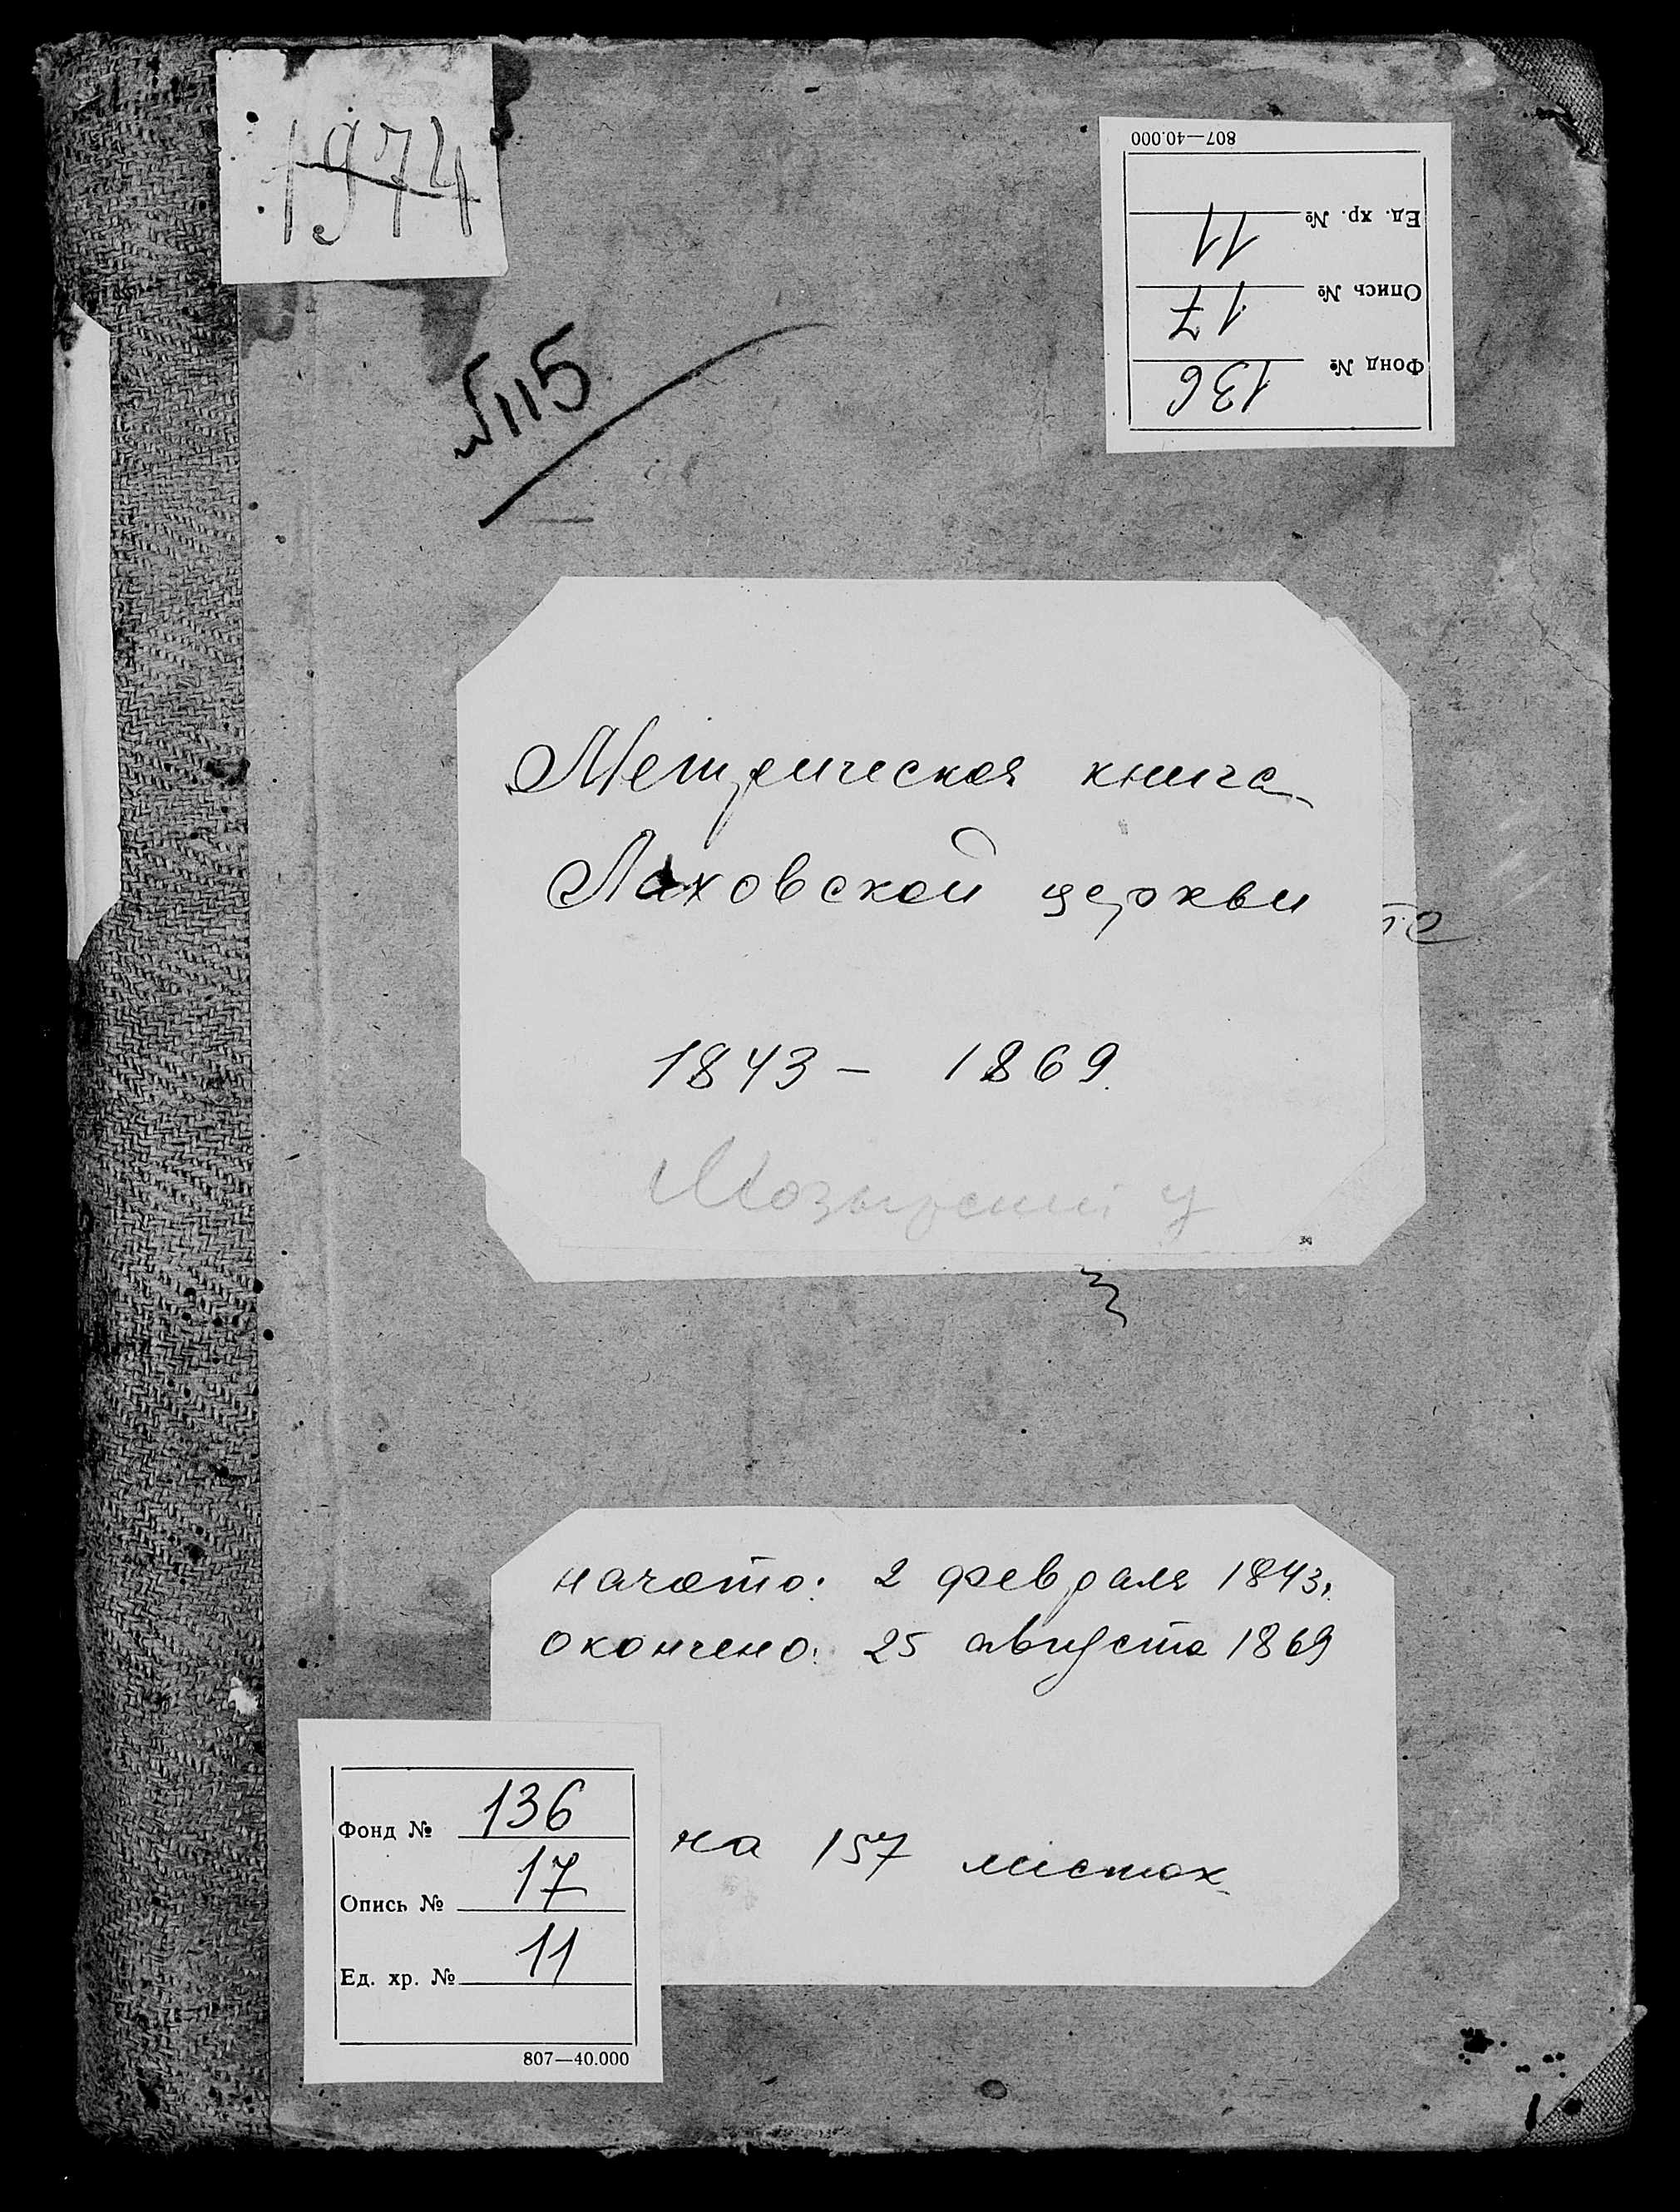 1974
807—40.000
Ед. хр. № 11
Опись № 17
Фонд № 136
№115
Метрическая книга
Ляховской церкви
1843 – 1869.
Мозырский у
начато: 2 февраля 1843г.
окончено: 25 августа 1869
на 157 листах
Фонд № 136
Опись № 17
Ед. хр. № 11
807—40.000